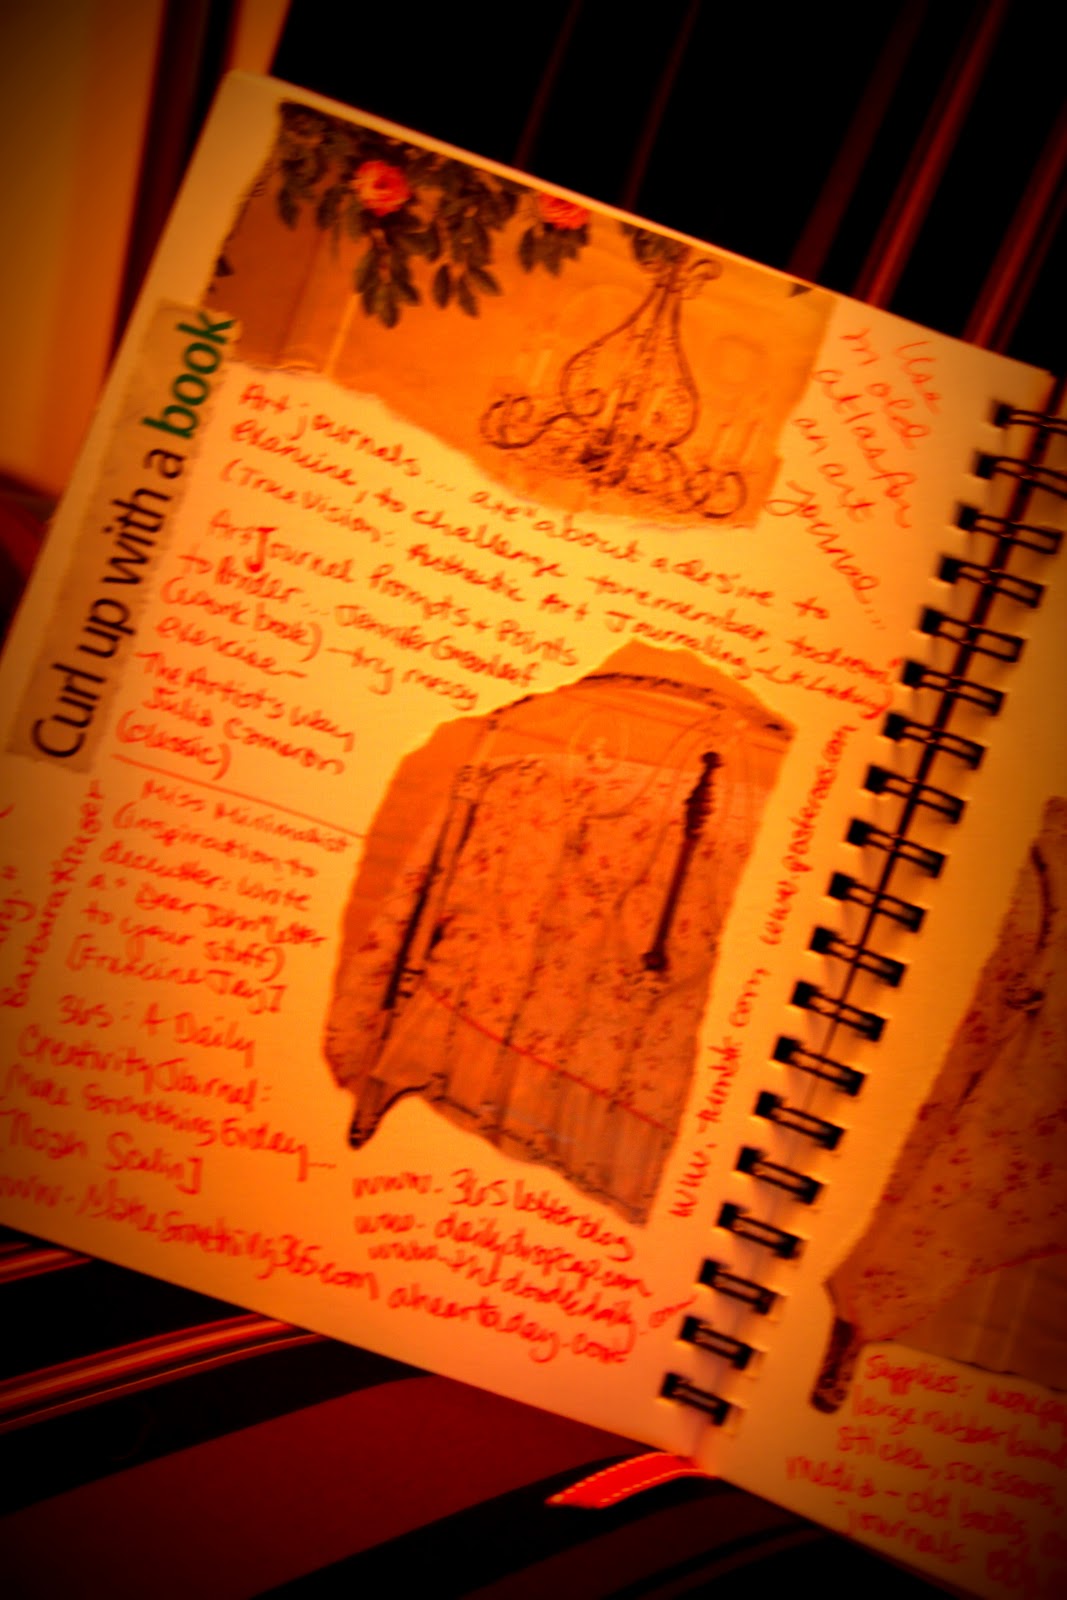 Curl up with a book
Use
an old
atlas for
an art
Journal...
Art journals... are "about a desire to
examine, to challenge, to remember, to dream"
(True Vision: Authentic Art Journaling - LK Ludwig)
Art Journal Prompts + Points
to Ponder... Jennifer Greenleaf
(workbook) - try messy
exercise -
The Artist's Way
Julia Cameron
(classic)
Miss Minimalist
(inspiration to
declutter: write
a "Dear John" letter
to your stuff)
[Francine Jay]
365: A Daily
Creativity Journal:
Make Something Every day...
[Noah Scalin]
www.MakeSomething365.com
Barbara Kruger
www.365letterblog
www.dailydropcap.com
www.thedoodledaily.com
aheartaday.com
www.tumblr.com
Supplies:
large rubber bands
sticks, scissors,
media - old books,
journals